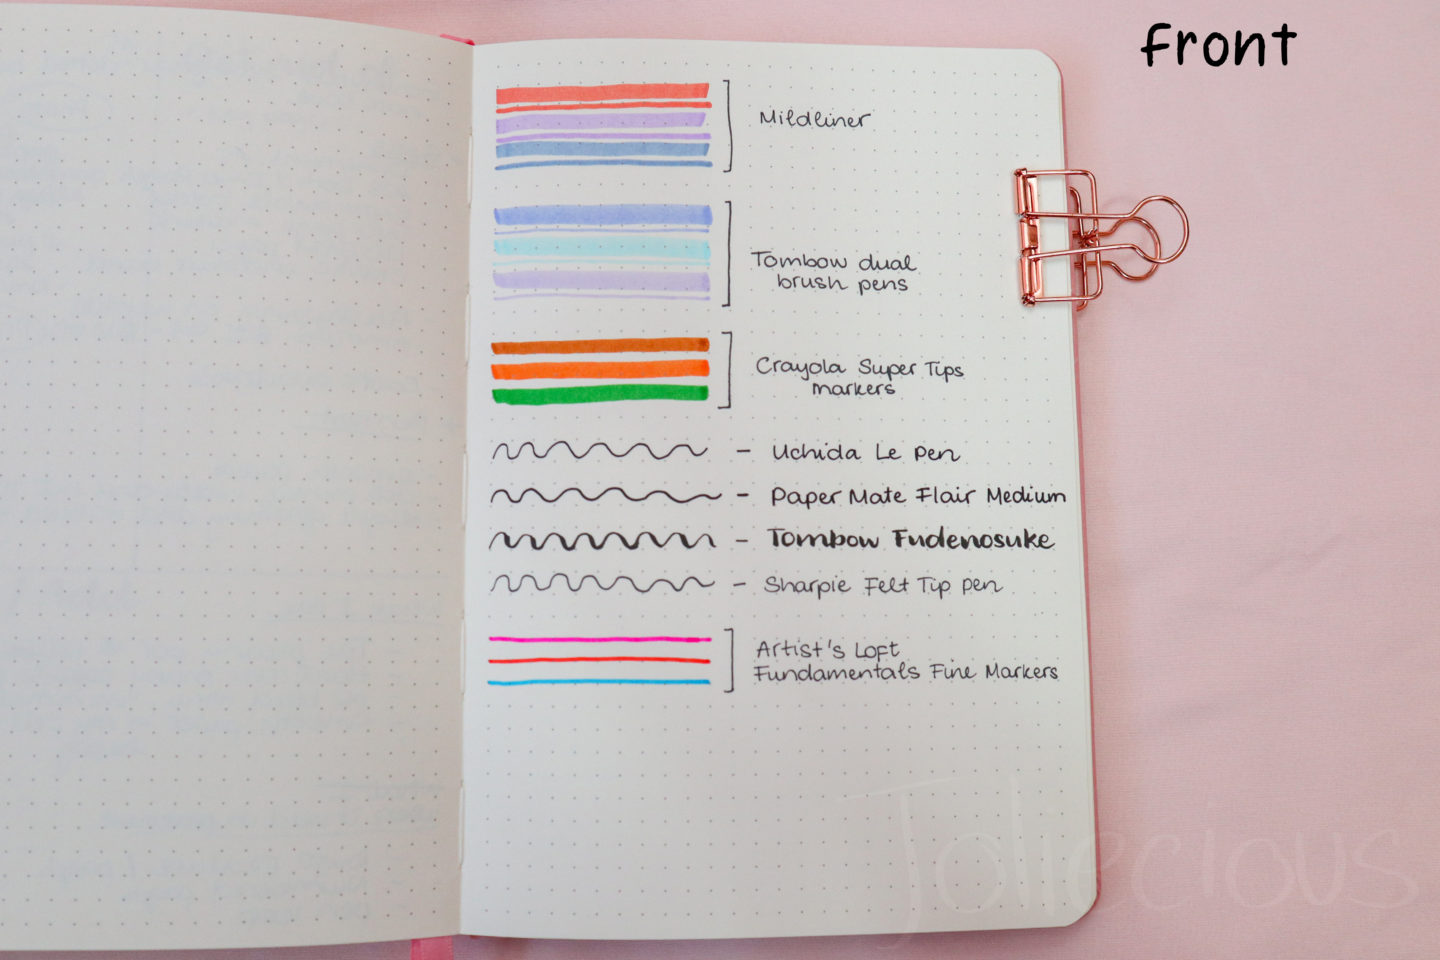 Front
Mildliner
Tombow dual
brush pens
Crayola Super Tips
markers
- Uchida Le Pen
- Paper Mate Flair Medium
- Tombow Fudenosuke
- Sharpie Felt Tip pen
Artist's Loft
Fundamentals Fine Markers
Joliecious